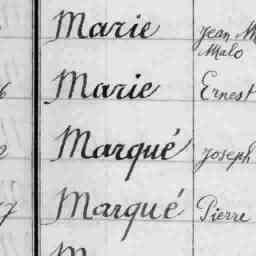 Marie Jean M
Malo
6 Marie Ernest
2 Marqué Joseph
7 Marqué Pierre
M